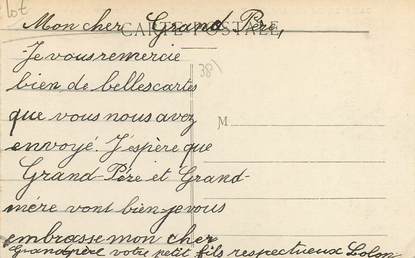 lot
Mon cher Grand Père,
CARTE POSTALE
Je vous remercie
38)
bien de belles cartes
que vous nous avez
M
envoyé. J'espère que
Grand-Père et Grand-
mère vont bien je vous
embrasse mon cher
Grand père votre petit fils respectueux Lolon